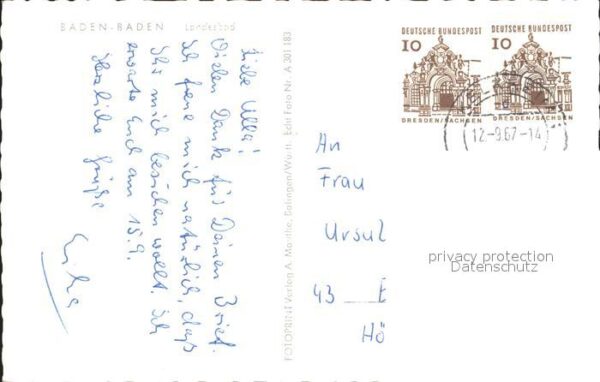 BADEN-BADEN Landesbad
Liebe Ulla!
Vielen Dank für Deinen Brief.
Ich freue mich natürlich, daß
Ihr mich besuchen wollt. Ich
erwarte Euch am 15.9.
Herzliche Grüße
FOTOPRINT Verlag A. Balingen/Württ. Echt Foto Nr. A 301 183
DEUTSCHE BUNDESPOST
10
DRESDEN/SACHSEN
DEUTSCHE BUNDESPOST
10
DRESDEN/SACHSEN
12-9.67-14
An
Frau
Ursul
43 E
Hö
privacy protection
Datenschutz